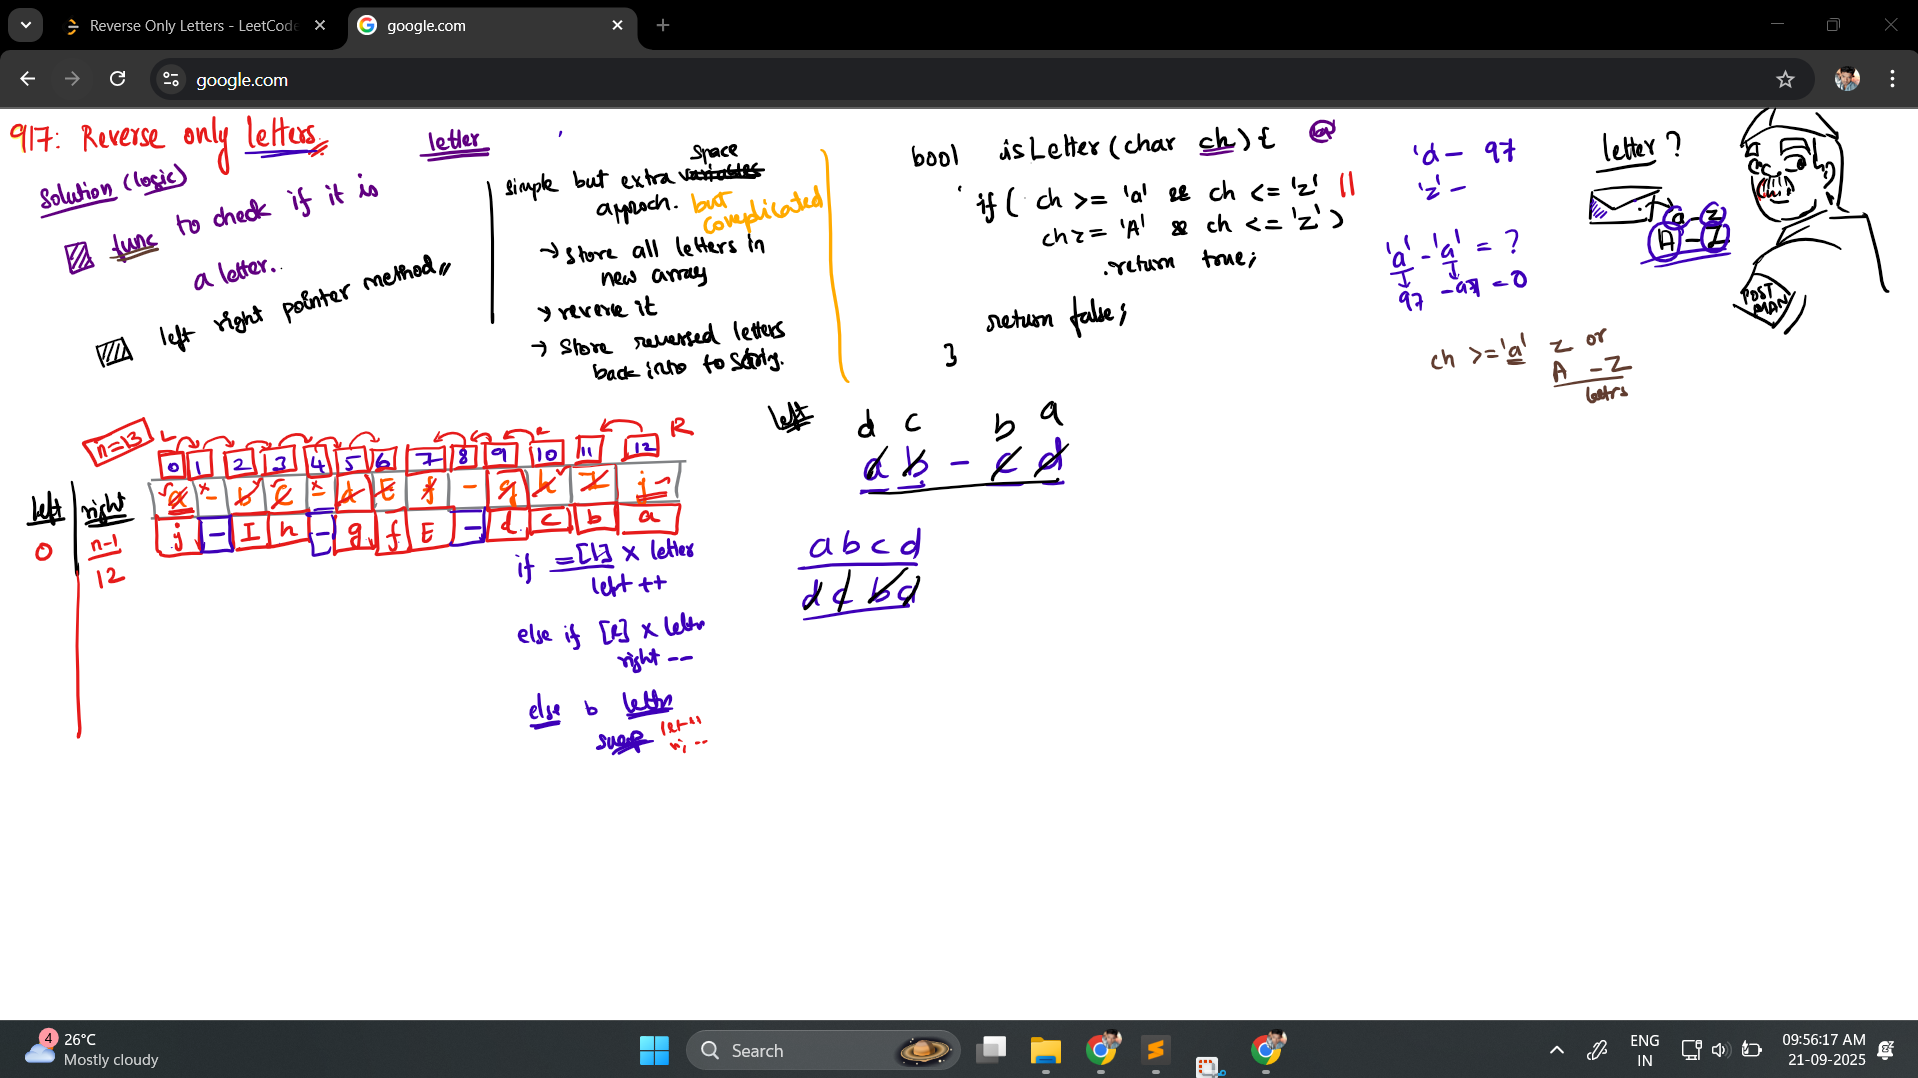 Reverse Only Letters - LeetCode
google.com
google.com
917: Reverse only letters
Solution (logic)
func to check if it is
a letter.
left right pointer method
letter
simple but extra space
approch. but
complicated
→ store all letters in
new array
→ reverse it
→ Store reversed letters
back into to
bool isLetter (char ch) {
if ( ch >= 'a' && ch <= 'z' ||
ch >= 'A' && ch <= 'Z' )
return true;
return false;
}
'a - 97
'z' -
'a' - 'a' = ?
97 - 97 = 0
ch >= 'a' z or
A - Z
letters
letter ?
a - z
A - Z
POST
MAN
n=13
L
R
0 1 2 3 4 5 6 7 8 9 10 11 12
left right
a - b C - d E f - g h I j
0 n-1
12
j - I h - g f E - d c b a
if [L] x letter
left ++
else if [R] x letter
right --
else b letter
swap
left
d c b a
a b - c d
a b c d
d c b a
4
26°C
Mostly cloudy
Search
ENG
IN
09:56:17 AM
21-09-2025